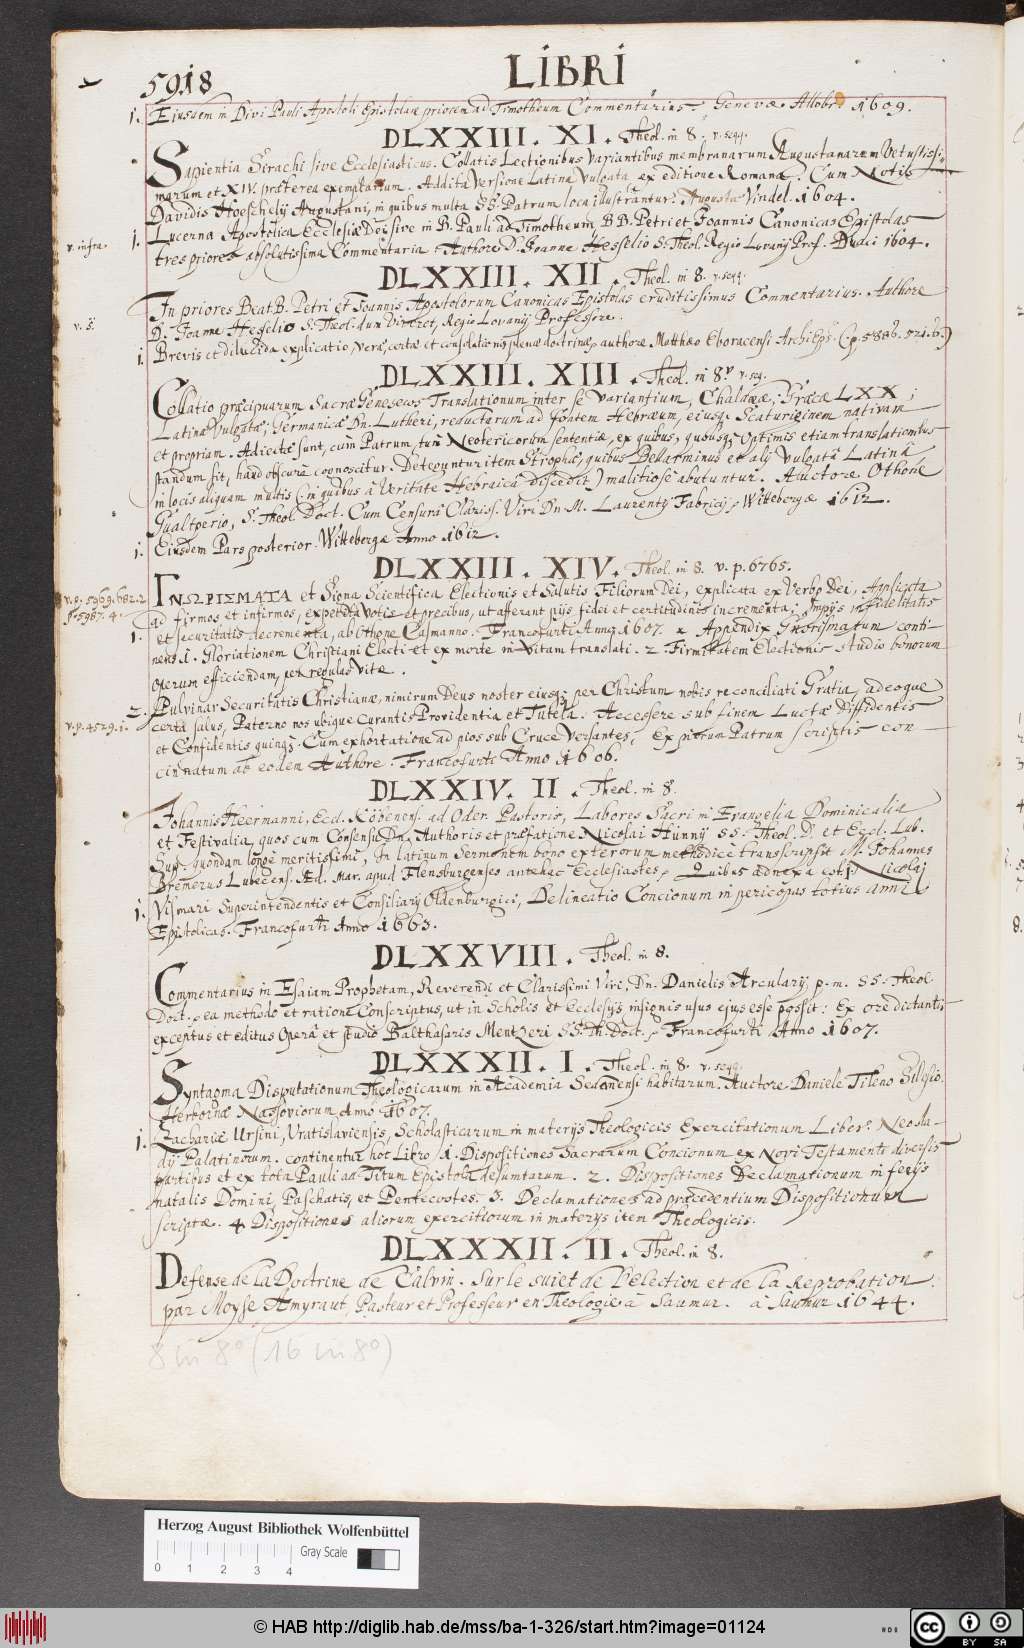 5918
LIBRI
1. Ejusdem in Divi Pauli Apostoli Epistolam priorem ad Timotheum Commentarius. Genevæ Allobr. 1609.
DLXXIII. XI. Theol. in 8. v. seqq.
Sapientia Sirachi sive Ecclesiasticus. Collatis Lectionibus variantibus membranarum Augustanarum Vetustissi-
marum et XIV. præterea exemplarium. Addita Versione Latina Vulgata ex editione Romana. Cum Notis
Davidis Hoeschelij Augustani, in quibus multa SS. Patrum loca illustrantur. Augustæ Vindel. 1604.
v. infra. 1. Lucerna Apostolica Ecclesiæ Dei sive in B. Pauli ad Timotheum, BB. Petri et Joannis Canonicas Epistolas
tres priores absolutissima Commentaria. Authore D. Joanne Hesselio S. Theol. Regio Lovanij Prof. Duaci 1604.
DLXXIII. XII. Theol. in 8. v. seqq.
In priores Beat. B. Petri et Joannis Apostolorum Canonicas Epistolas eruditissimus Commentarius. Authore
D. Joanne Hesselio S. Theol. dum viveret, Regio Lovanij Professore.
1. Brevis et dilucida explicatio, veræ, certæ et consolationis plenæ doctrinæ, authore Matthæo Eboracensi ArchiEps.
DLXXIII. XIII. Theol. in 8. v. seq.
Collatio præcipuarum Sacræ Genesews Translationum inter se variantium, Chaldææ, Græcæ LXX;
Latinæ Vulgatæ; Germanicæ Dn. Lutheri, reductarum ad fontem Hebræum, ejusq. Scaturiginem nativam
et propriam. Adjectæ sunt, cum Patrum, tum Neotericorum sententiæ, ex quibus, quousq; optimis etiam translationibus
standum sit, haud obscurè cognoscitur. Deteguntur item Strophæ, quibus Bellarminus et alij vulgatâ Latinâ
in locis aliquam multis (in quibus â Veritate Hebraica discedit) malitiosè abutuntur. Auctore Othone
Gualtperio, S. Theol. Doct. Cum Censurâ Clariss. Viri Dn. M. Laurentij Fabricij. Wittebergæ 1612.
1. Ejusdem Pars posterior. Wittebergæ Anno 1612.
DLXXIII. XIV. Theol. in 8. v. p. 6765.
v. p. 5969. 682. 2
p. 5987. 4.
ΓΝΩΡΙΣΜΑΤΑ et Signa Scientifica Electionis et Salutis Filiorum Dei, explicata ex Verbo Dei,
ad firmos et infirmos, expetita votis et precibus, ut afferant pijs fidei et certitudinis incrementa; Impijs infidelitatis
et securitatis decrementa, ab Othone Casmanno. Francofurti Anno 1607.
1. Appendix Gnorismatum conti-
nens 1. Gloriationem Christiani Electi et ex morte in vitam translati. 2. Firmitatem Electionis studio bonorum
operum efficiendam, per regulas vitæ.
v. p. 4529. 1. 2. Pulvinar Securitatis Christianæ, nimirum Deus noster ejusq; per Christum nobis reconciliati Gratia, adeoque
certa salus, Paterno nos ubique curantis Providentia et Tutela. Accessere sub finem Luctæ Diffidentis
et Confidentis quinq;. Cum exhortatione ad pios sub Cruce Versantes, Ex piorum Patrum scriptis con-
cinnatum ab eodem Authore. Francofurti Anno 1606.
DLXXIV. II. Theol. in 8.
Johannis Heermanni, Eccl. Köbenens. ad Oder. Pastoris, Labores Sacri in Evangelia Dominicalia
et Festivalia, quos cum Consensu Dn. Authoris et præfatione Nicolai Hunnij SS. Theol. D. et Eccl. Lub.
Sup. quondam longè meritissimi, In latinum Sermonem bono exterorum methodicè transcripsit M. Johannes
Bremerus Lubecens. Æd. Mar. apud Flensburgenses antehac Ecclesiastes. Quibus adnexa est Nicolai
1. Vismari Superintendentis et Consiliarij Oldenburgici, Delineatio Concionum in pericopas totius anni
Epistolicas. Francofurti Anno 1663.
DLXXVIII. Theol. in 8.
Commentarius in Esaiam Prophetam, Reverendi et Clarissimi Viri, Dn. Danielis Arcularij p. m. SS. Theol.
Doct. ea methodo et ratione Conscriptus, ut in Scholis et Ecclesijs insignis usus ejus esse possit: Ex ore dictantis
exceptus et editus Operâ et studio Balthasaris Mentzeri SS. Th. Doct. Francofurti Anno 1607.
DLXXXII. I. Theol. in 8. v. seqq.
Syntagma Disputationum Theologicarum in Academia Sedanensi habitarum. Auctore Daniele Tileno Silesio.
Herbornæ Nassoviorum Anno 1607.
1. Zachariæ Ursini, Vratislaviensis, Scholasticarum in materijs Theologicis Exercitationum Liber. Neosta-
dij Palatinorum. continentur hoc Libro 1. Dispositiones Sacrarum Concionum ex Novi Testamenti diversis
partibus et ex tota Pauli ad Titum Epistola desumtarum. 2. Dispositiones Declamationum in ferijs
natalis Domini, Paschatis, et Pentecostes. 3. Declamationes ad præcedentium Dispositionum
scriptæ. 4 Dispositiones aliorum exercitiorum in materijs item Theologicis.
DLXXXII. II. Theol. in 8.
Defense de la Doctrine de Calvin. Sur le sujet de l'election et de la Reprobation
par Moyse Amyraut, Pasteur et Professeur en Theologie à Saumur. à Saumur 1644.
8 in 8° (16 in 8°)
Herzog August Bibliothek Wolfenbüttel
Gray Scale
0 1 2 3 4
© HAB http://diglib.hab.de/mss/ba-1-326/start.htm?image=01124
HAB
cc BY SA